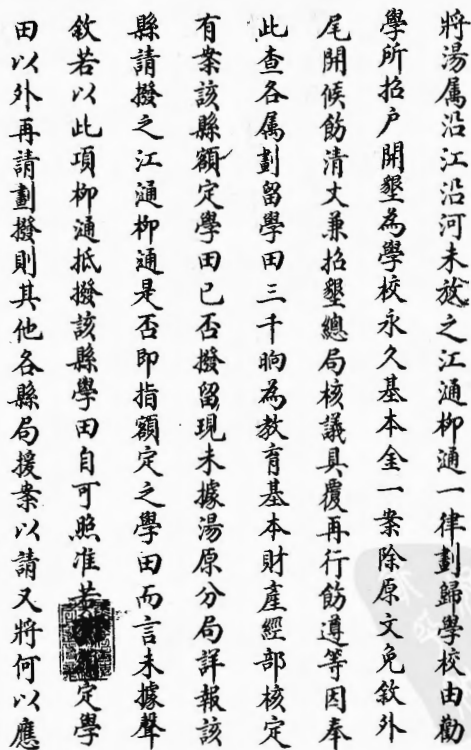 將湯属沿江沿河未放之江通柳通一律劃歸學校由勸
學所招户開墾為學校永久基本金一案除原文免敘外
尾開候飭清丈兼招墾總局核議具覆再行飭遵等因奉
此查各属劃留學田三千晌為教育基本財產經部核定
有案該縣額定學田已否撥留現未據湯原分局詳報該
縣請撥之江通柳通是否即指額定之學田而言未據聲
敘若以此項柳通抵撥該縣學田自可照准若定學
田以外再請劃撥則其他各縣局援案以請又將何以應